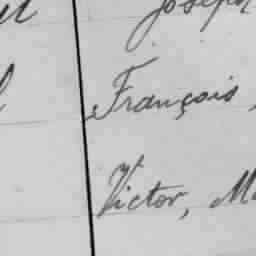 Joseph
François,
Victor, Ma